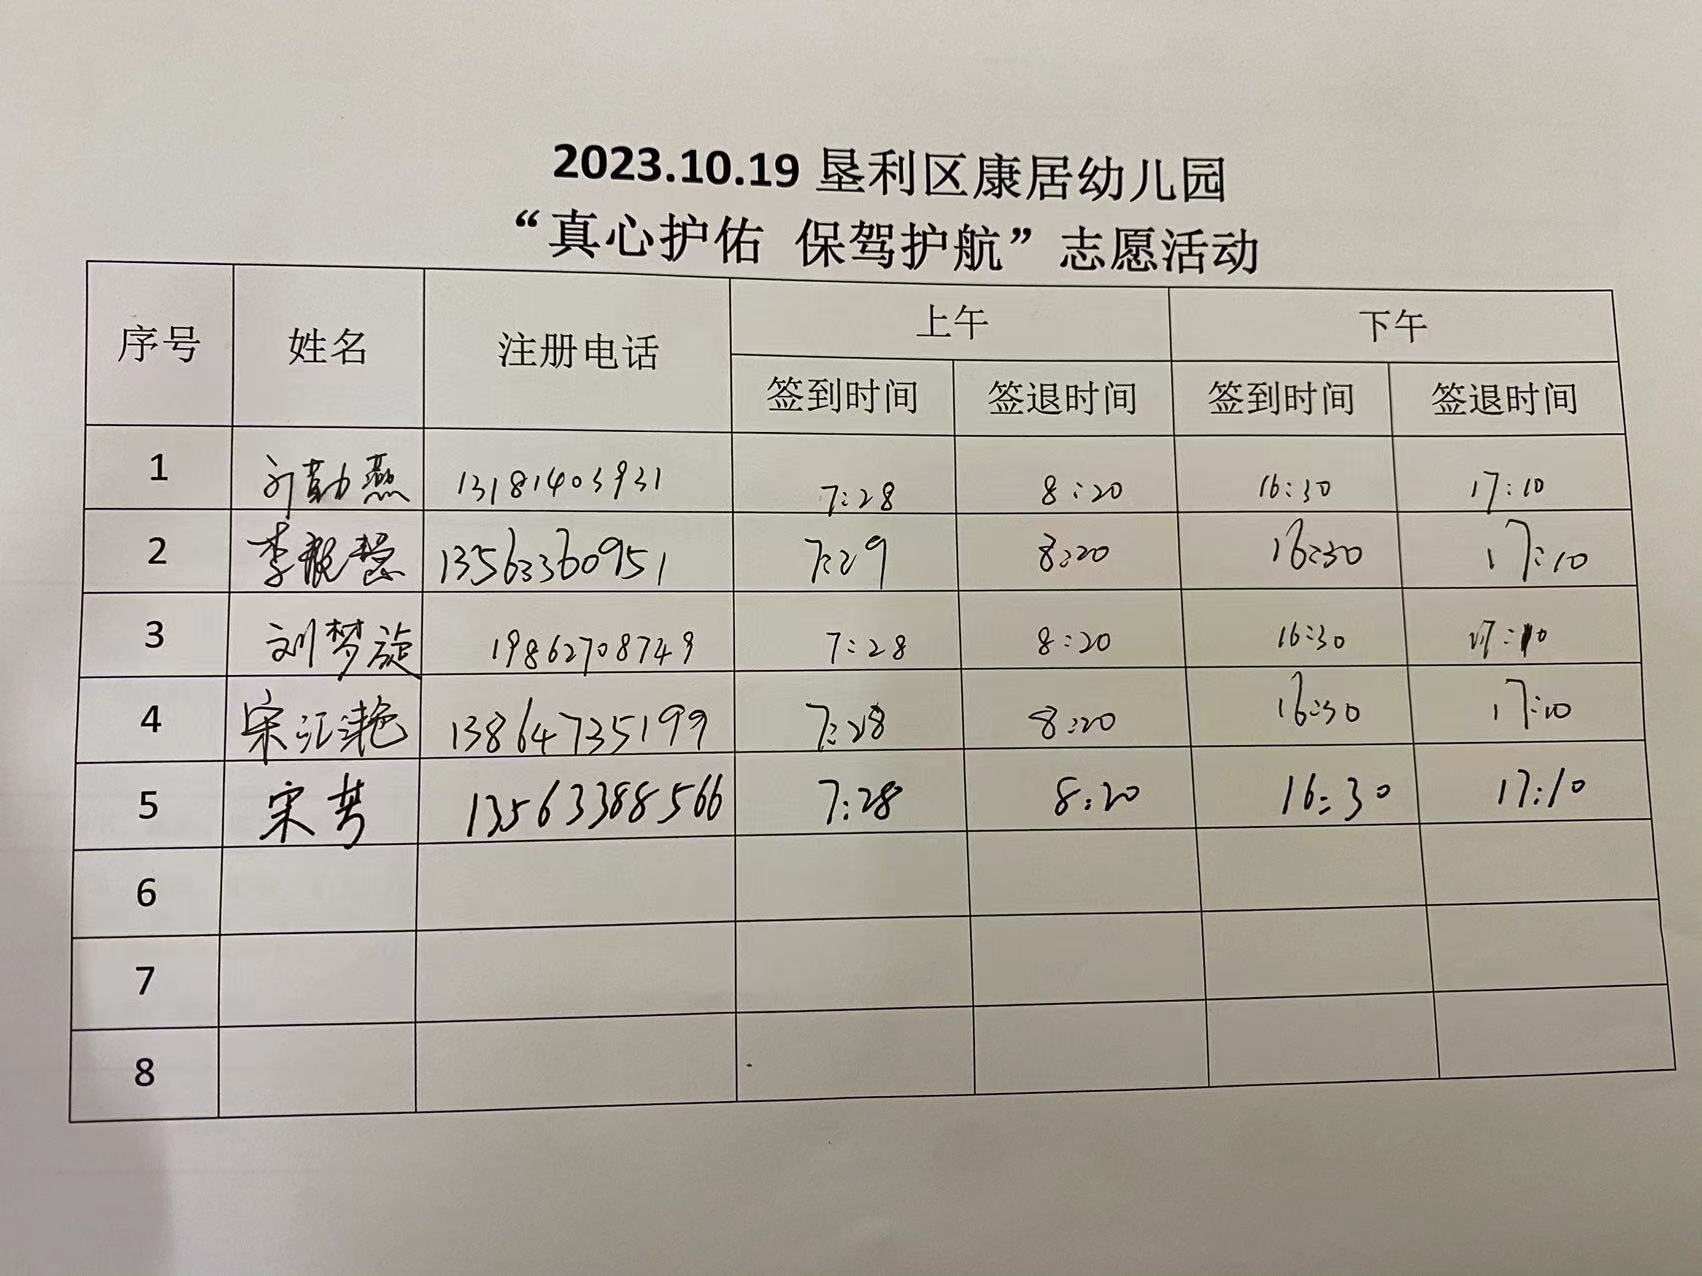 2023.10.19 垦利区康居幼儿园
“真心护佑 保驾护航”志愿活动
序号 姓名 注册电话 上午 下午
签到时间 签退时间 签到时间 签退时间
1 13181403931 7:28 8:20 16:30 17:10
2 李 慧 13563360951 7:29 8:20 16:30 17:10
3 刘梦旋 19862708749 7:28 8:20 16:30 17:10
4 宋江艳 13864735199 7:28 8:20 16:30 17:10
5 宋 13563388566 7:28 8:20 16:30 17:10
6
7
8